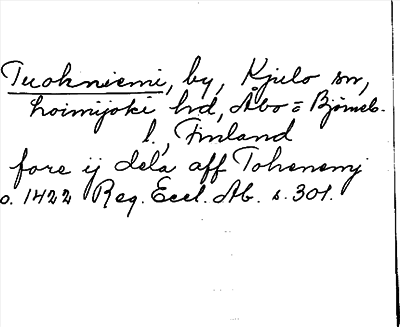 Tuohniemi, by, Kjulo sn,
Loimijoki hd, Åbo = Björneb.
l., Finland
fore ij dela aff Tohenemj
o. 1422 Reg. Eccl. Ab. s. 301.